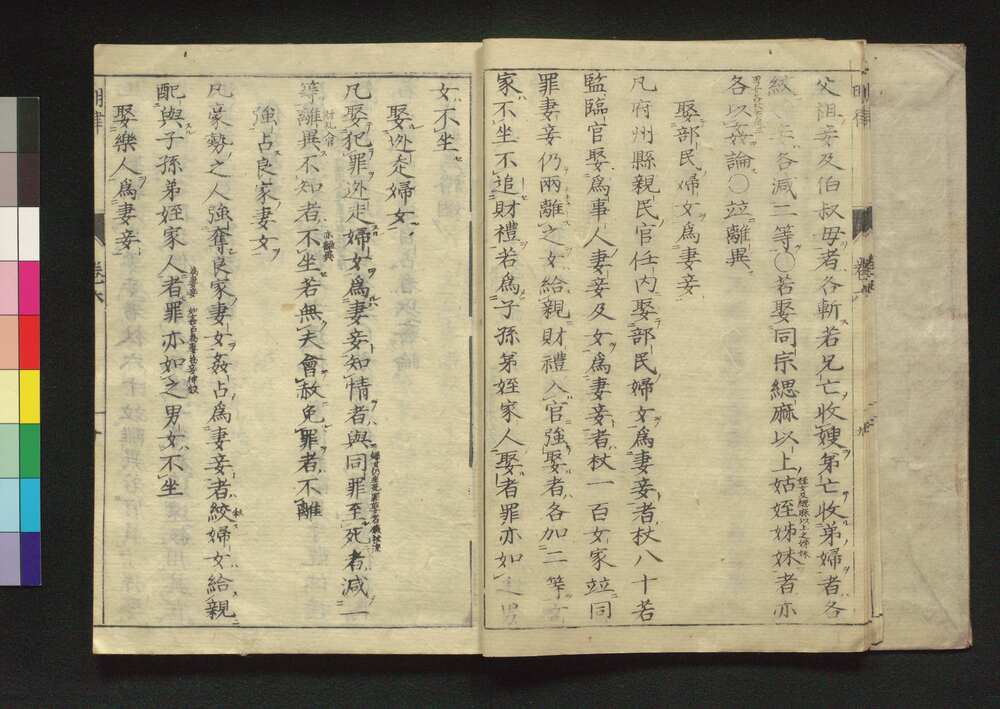 父祖妾及伯叔母者各斬若兄亡收嫂弟亡收弟婦者各
絞 各減二等〇若娶同宗緦麻以上姑姪姊妹者亦
各以姦論〇竝離異
娶部民婦女爲妻妾
凡府州縣親民官任内娶部民婦女爲妻妾者杖八十若
監臨官娶爲事人妻妾及女爲妻妾者杖一百女家竝同
罪妻妾仍兩離之女給親財禮入官強娶者各加二等女
家不坐不追財禮若爲子孫弟姪家人娶者罪亦如之男
女不坐
娶迯走婦女
凡娶犯罪迯走婦女爲妻妾知情者與同罪至死者減一
等離異不知者不坐若無夫會赦免罪者不離
強占良家妻女
凡豪勢之人強奪良家妻女姦占爲妻妾者絞婦女給親
配與子孫弟姪家人者罪亦如之男女不坐
娶樂人爲妻妾
明律
卷六